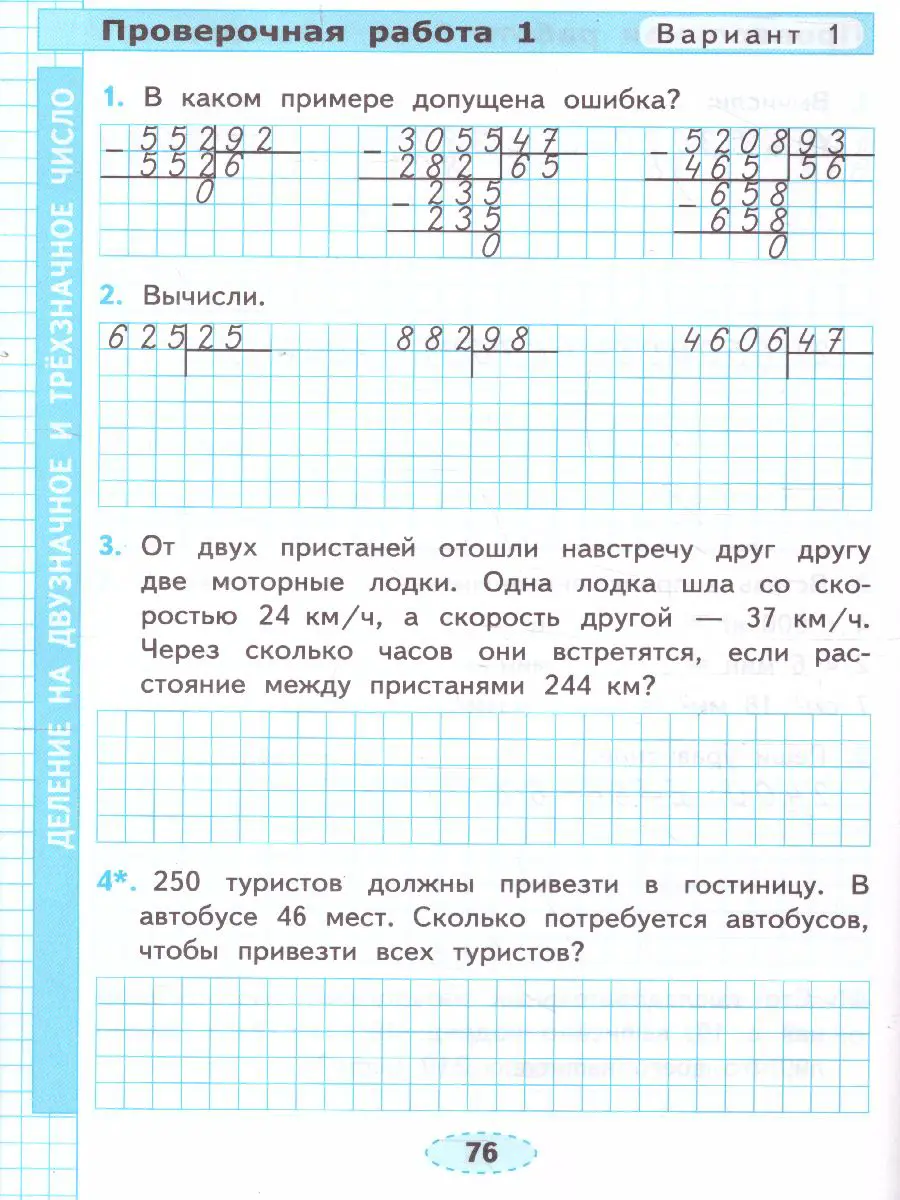 Проверочная работа 1 Вариант 1
ДЕЛЕНИЕ НА ДВУЗНАЧНОЕ И ТРЁХЗНАЧНОЕ ЧИСЛО
1. В каком примере допущена ошибка?
– 552 92 – 3055 47 – 5208 93
552 6 282 65 465 56
0 – 235 – 658
235 658
0 0
2. Вычисли.
625 25 882 98 4606 47
3. От двух пристаней отошли навстречу друг другу
две моторные лодки. Одна лодка шла со ско-
ростью 24 км/ч, а скорость другой — 37 км/ч.
Через сколько часов они встретятся, если рас-
стояние между пристанями 244 км?
4*. 250 туристов должны привезти в гостиницу. В
автобусе 46 мест. Сколько потребуется автобусов,
чтобы привезти всех туристов?
76